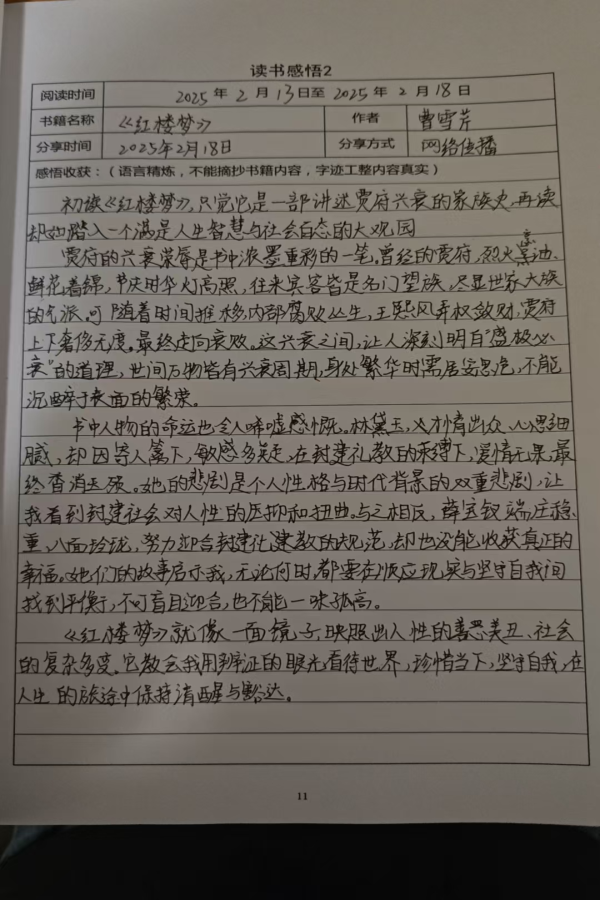 读书感悟2
阅读时间 2025 年 2 月 13日至 2025 年 2 月 18 日
书籍名称 《红楼梦》 作者 曹雪芹
分享时间 2025年2月18日 分享方式 网络传播
感悟收获：（语言精炼，不能摘抄书籍内容，字迹工整内容真实）
初读《红楼梦》，只觉它是一部讲述贾府兴衰的家族史，再读
却如踏入一个满是人生智慧与社会百态的大观园
贾府的兴衰荣辱是书中浓墨重彩的一笔。曾经的贾府，烈火烹油、
鲜花着锦，节庆时华灯高照，往来宾客皆是名门望族，尽显世家大族
的气派。可随着时间推移，内部腐败丛生，王熙凤弄权敛财，贾府
上下奢侈无度。最终走向衰败。这兴衰之间，让人深刻明白"盛极必
衰"的道理，世间万物皆有兴衰周期，身处繁华时需居安思危，不能
沉醉于表面的繁荣。
书中人物的命运也令人唏嘘感慨。林黛玉，才情出众、心思细
腻，却因寄人篱下，敏感多疑，在封建礼教的束缚下，爱情无果，最
终香消玉殒。她的悲剧是个人性格与时代背景的双重悲剧，让
我看到封建社会对人性的压抑和扭曲。与之相反，薛宝钗端庄稳
重，八面玲珑，努力迎合封建礼教的规范，却也没能收获真正的
幸福。她们的故事启示我，无论何时，都要在顺应现实与坚守自我间
找到平衡，不可盲目迎合，也不能一味孤高。
《红楼梦》就像一面镜子，映照出人性的善恶美丑、社会
的复杂多变。它教会我用辩证的眼光看待世界，珍惜当下，坚守自我，在
人生的旅途中保持清醒与豁达。
11